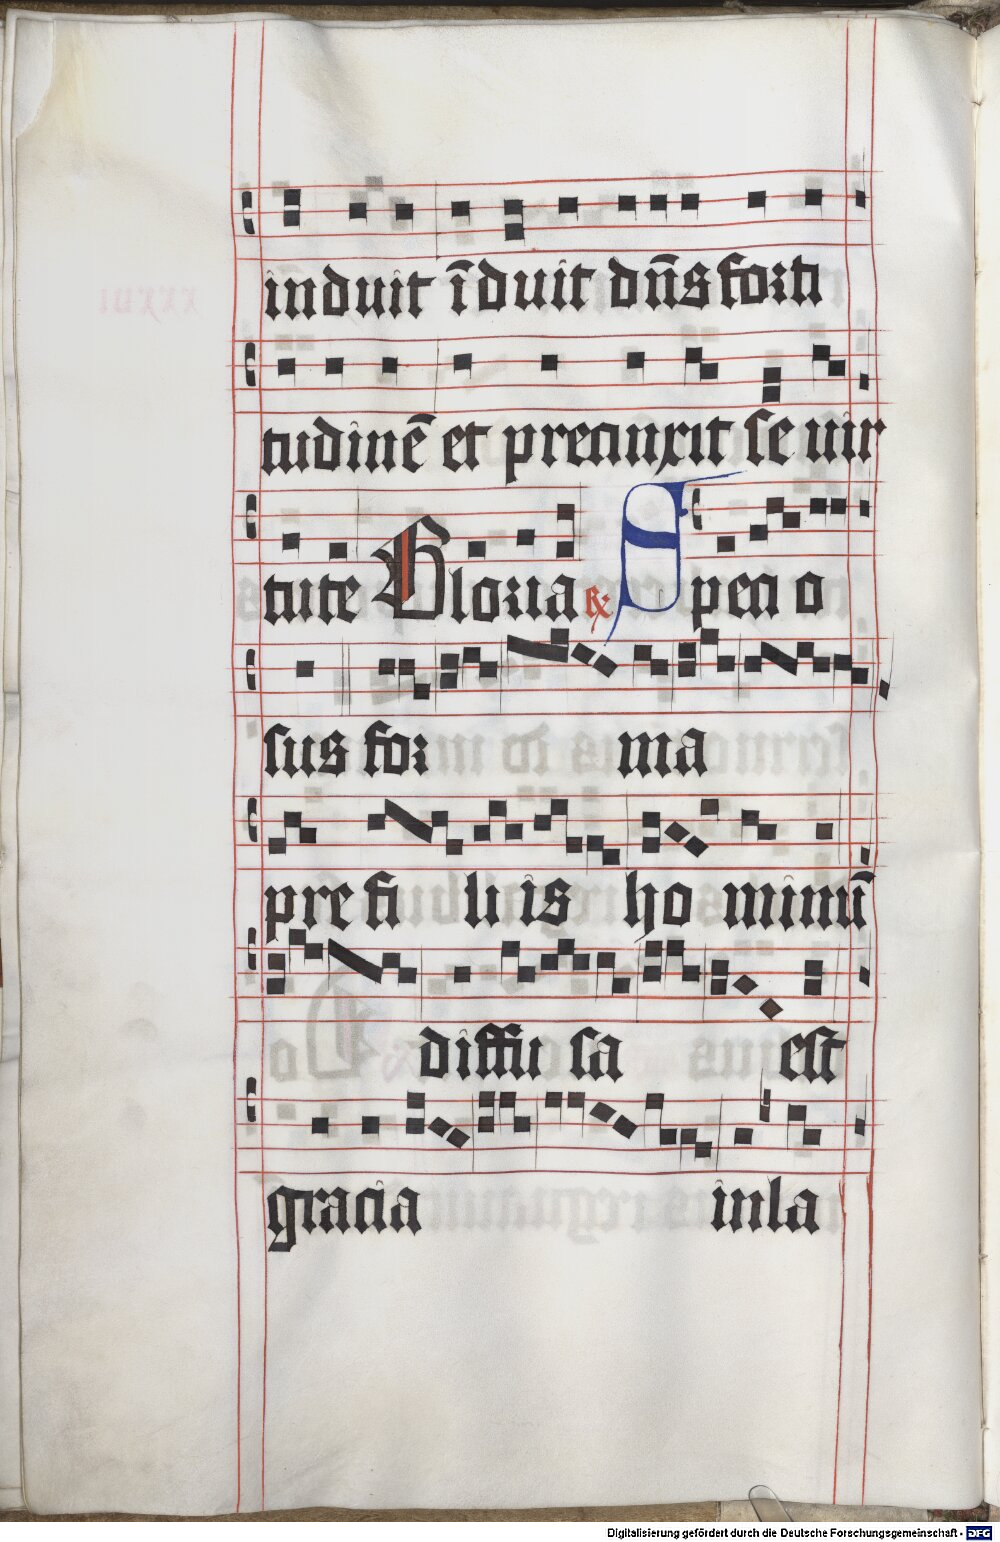 induit īduit dn̄s forti
tudinē et precinxit se uir
tute Gloria ℟ Speci o
sus for ma
pre fi lüs ho minū
diffu sa est
gracia in la
Digitalisierung gefördert durch die Deutsche Forschungsgemeinschaft - DFG